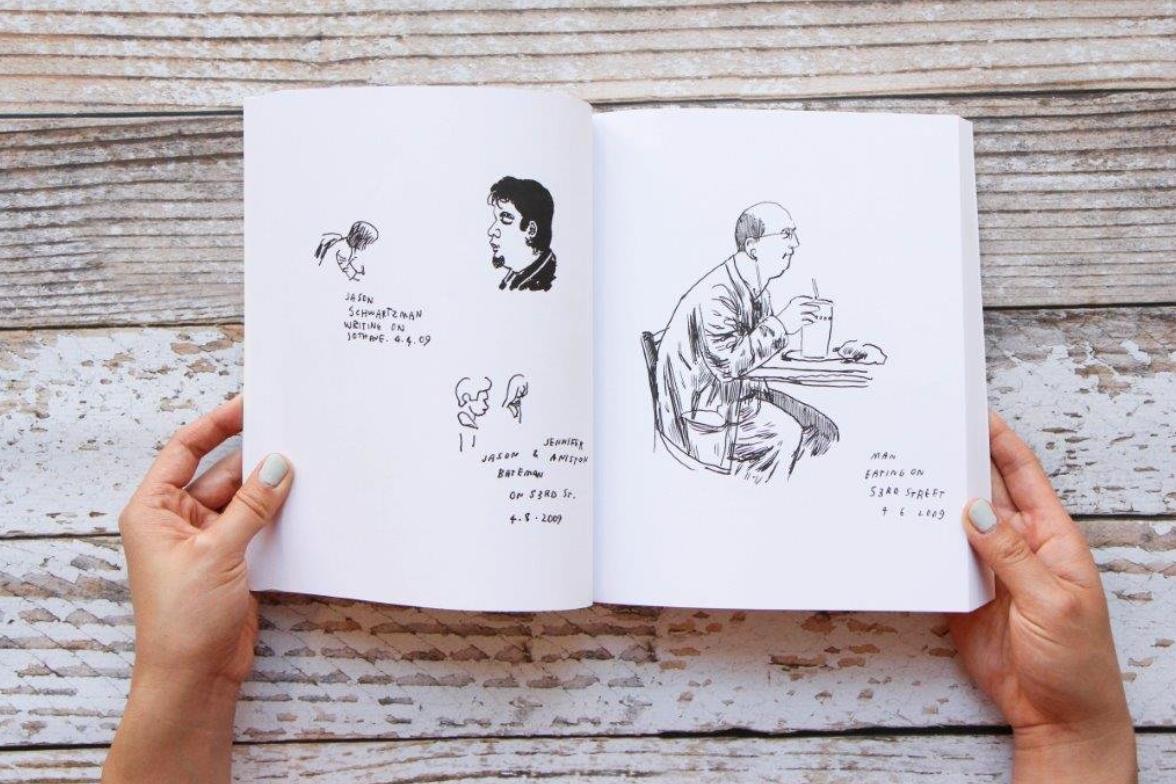 JASON
SCHWARTZMAN
WRITING ON
4.4.09
JENNIFER
JASON & ANISTON
BATEMAN
ON 53RD ST.
4.8.2009
MAN
EATING ON
53RD STREET
4 6 2009